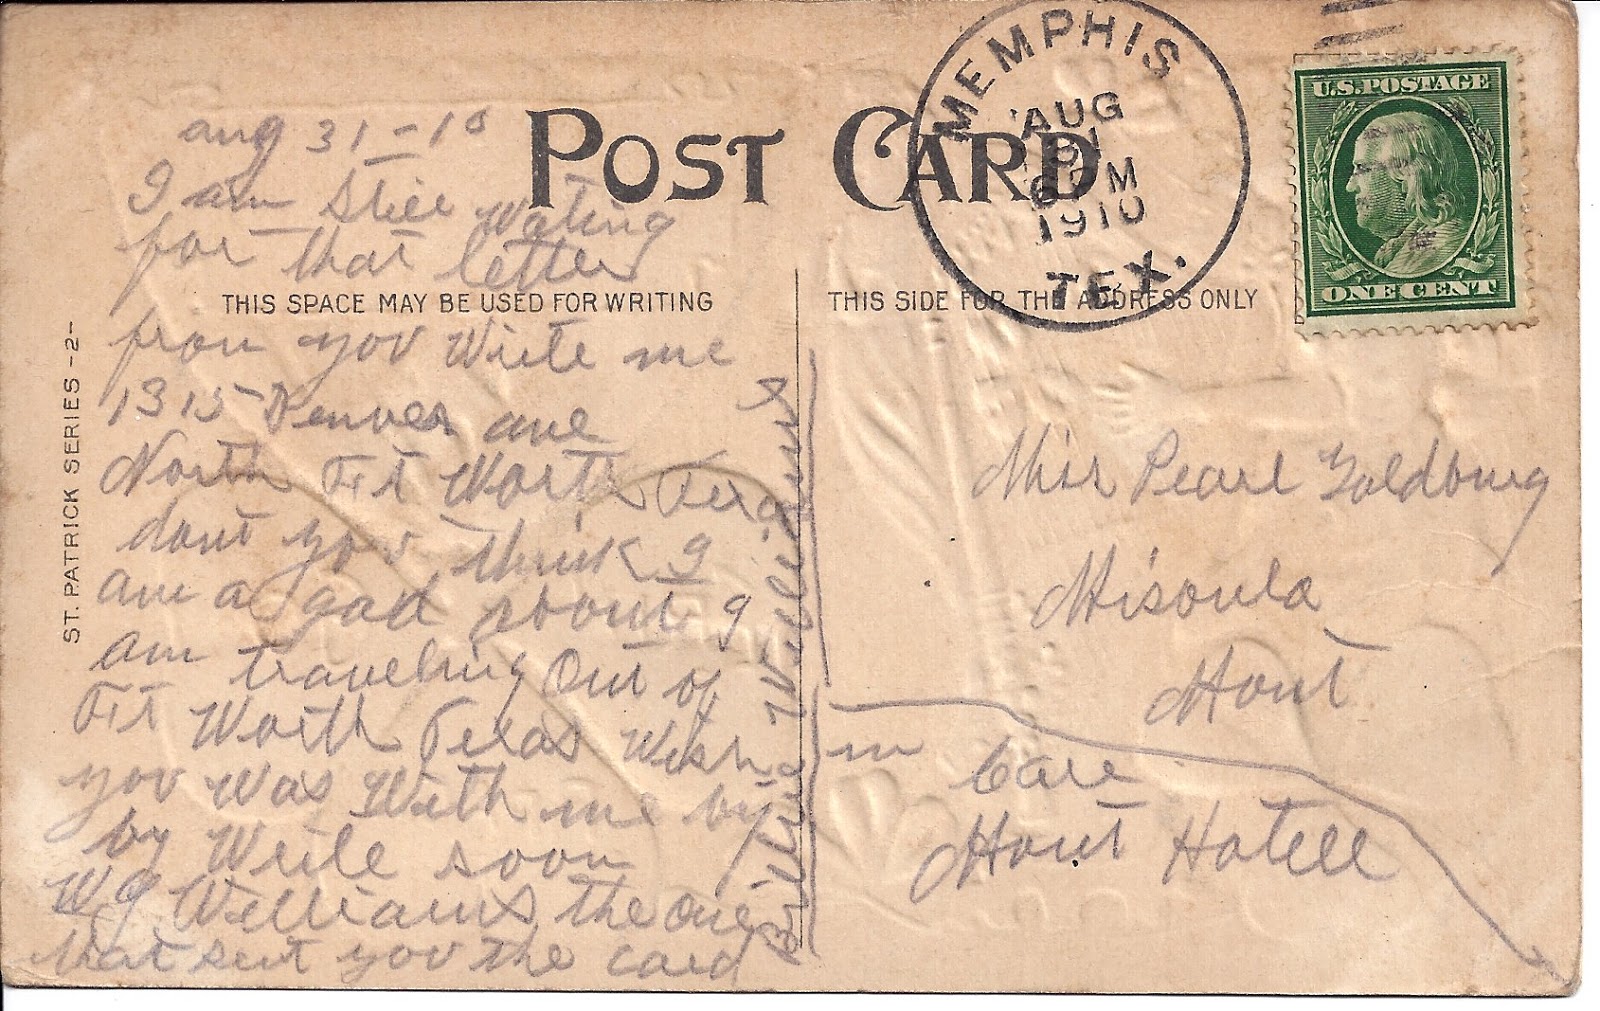 POST CARD
MEMPHIS
AUG
31
6 PM
1910
TEX.
U.S. POSTAGE
ONE CENT
THIS SPACE MAY BE USED FOR WRITING
THIS SIDE FOR THE ADDRESS ONLY
ST. PATRICK SERIES -2-
aug 31-10
I am Still Wating
for that letter
from you Write me
1315 Denver ave
North Ft Worth Texas
dont you think I
am a gad about I
am traveling Out of
Ft Worth Texas Wish
you Was With me by
by Write soon
W g Williams the One
that sent you the card
Williams
Miss Pearl Goldburg
Misoula
Mont
in Care
Mont Hotell